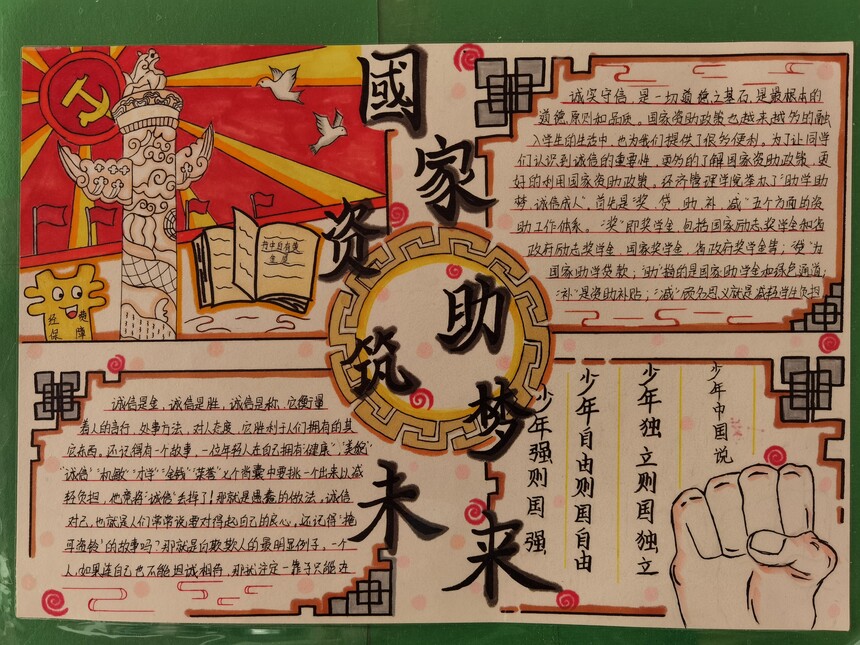 國家
资助
筑梦
未来
书中自有黄
金屋
经
保障
诚实守信,是一切道德之基石,是最根本的
道德原则和品质。国家资助政策也越来越多的融
入学生的生活中,也为我们提供了很多便利。为了让同学
们认识到诚信的重要性,更多的了解国家资助政策,更
好的利用国家资助政策,经济管理学院举办了“助学助
梦,诚信成人,首先是“奖、贷、助、补、减”五个方面的资
助工作体系。“奖”即奖学金,包括国家励志奖学金和省
政府励志奖学金,国家奖学金,省政府奖学金等;“贷”为
国家助学贷款;“助”指的是国家助学金和绿色通道;
“补”是资助补贴;“减”顾名思义就是减轻学生负担
诚信是金,诚信是胜,诚信是称,它衡量
着人的言行、处事方法、对人态度,它胜利于人们拥有的其
它东西,还记得有个故事,一位年轻人在自己拥有“健康”“美貌”
“诚信”“机敏”“才学”“金钱”“荣誉”七个背囊中要挑一个出来以减
轻负担,他竟将“诚信”丢掉了!那就是愚蠢的做法,诚信
对己,也就是人们常常说要对得起自己的良心,还记得“掩
耳盗铃”的故事吗?那就是自欺欺人的最明显例子,一个
人,如果连自己也不能坦诚相待,那就注定一辈子只能
少年中国说
少年独立则国独立
少年自由则国自由
少年强则国强